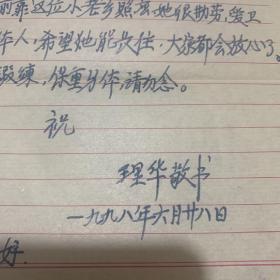 前靠这位小老乡照亮她很勤劳,爱卫
人,希望她能长住,大家都会放心了。
锻练,保重身体,请勿念。
祝
理华敬书
一九九八年六月廿八日
好.